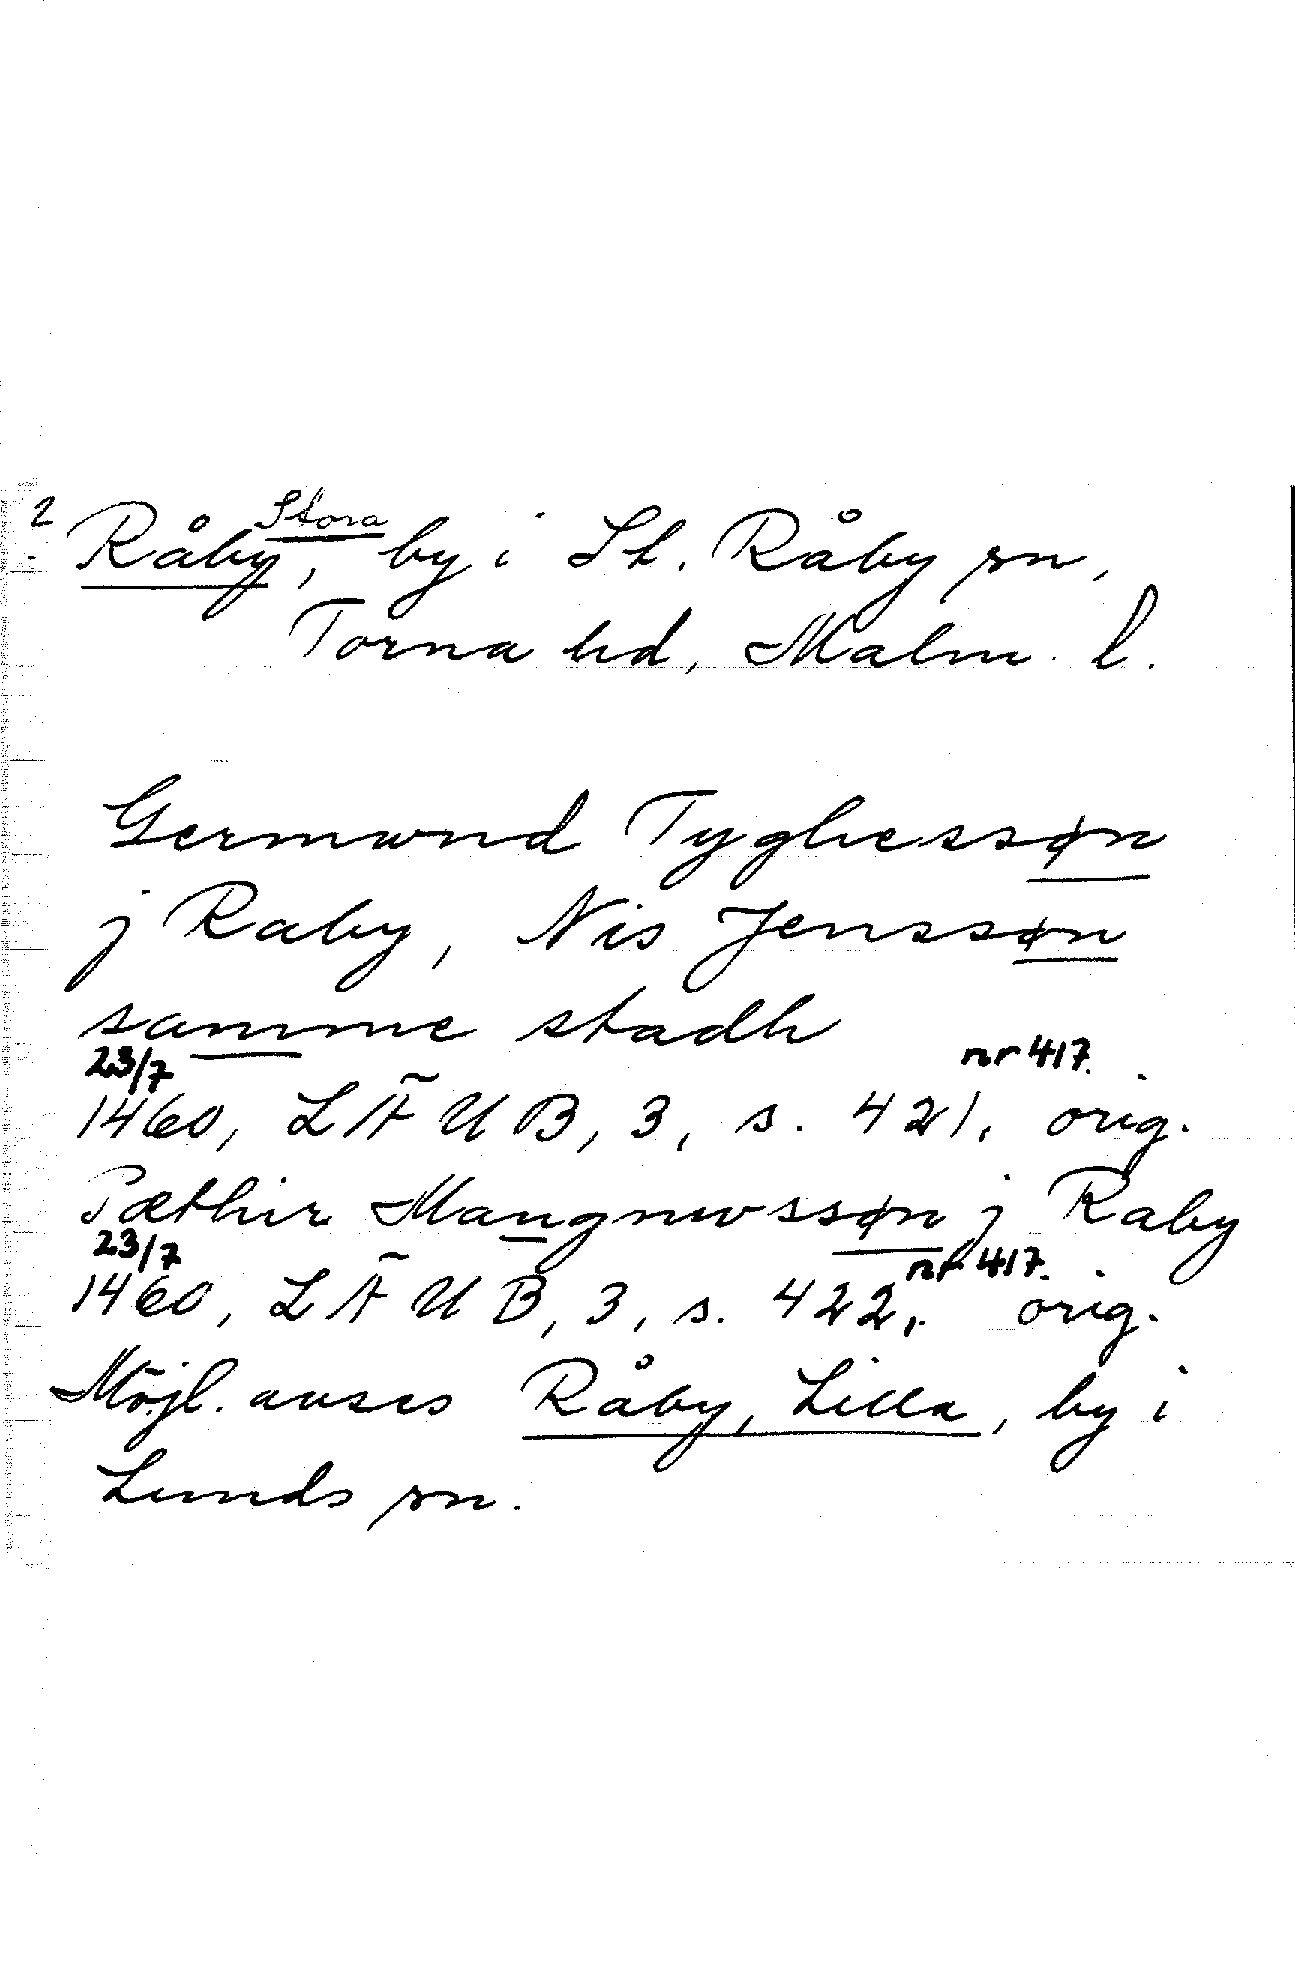 2
Stora
Råby, by i St. Råby sn,
Torna hd, Malm. l.
Germwnd Tyghessøn
j Raby, Nis Jenssøn
samme stadh
23/7 nr 417.
1460, LÄUB, 3, s. 421, orig.
Pæthir Mangnwssøn j Raby
23/7 nr 417.
1460, LÄUB, 3, s. 422, orig.
Möjl. avses Råby, Lilla, by i
Lunds sn.